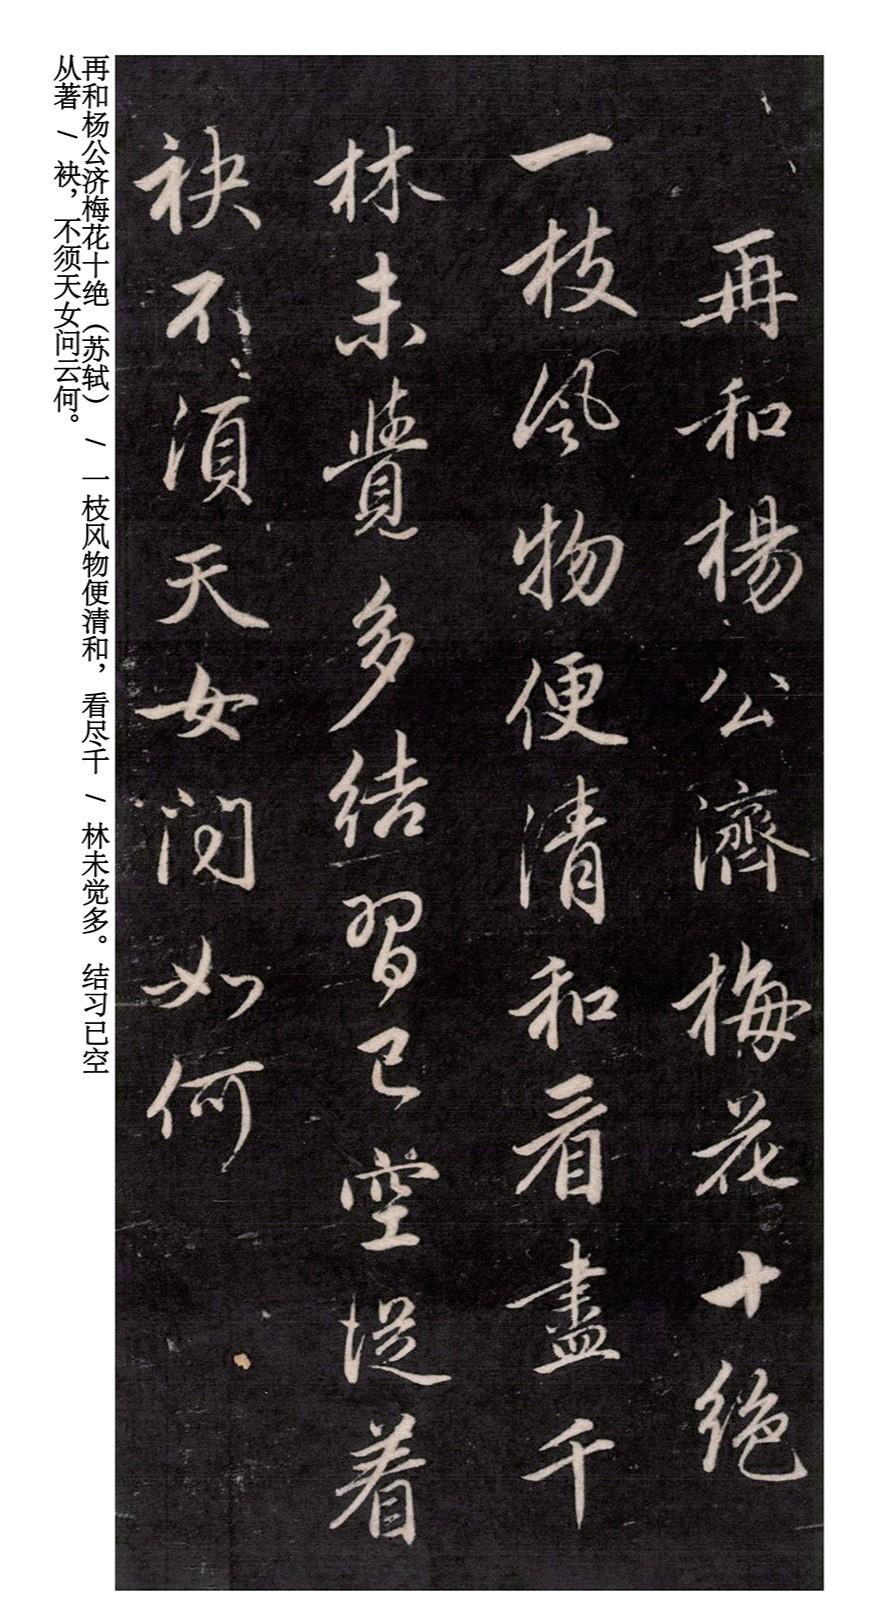 再和楊公濟梅花十絶
一枝風物便清和看盡千
林未覺多結習已空從着
袂不須天女問如何
再和杨公济梅花十绝（苏轼） / 一枝风物便清和，看尽千 / 林未觉多。结习已空
从著 / 袂，不须天女问云何。